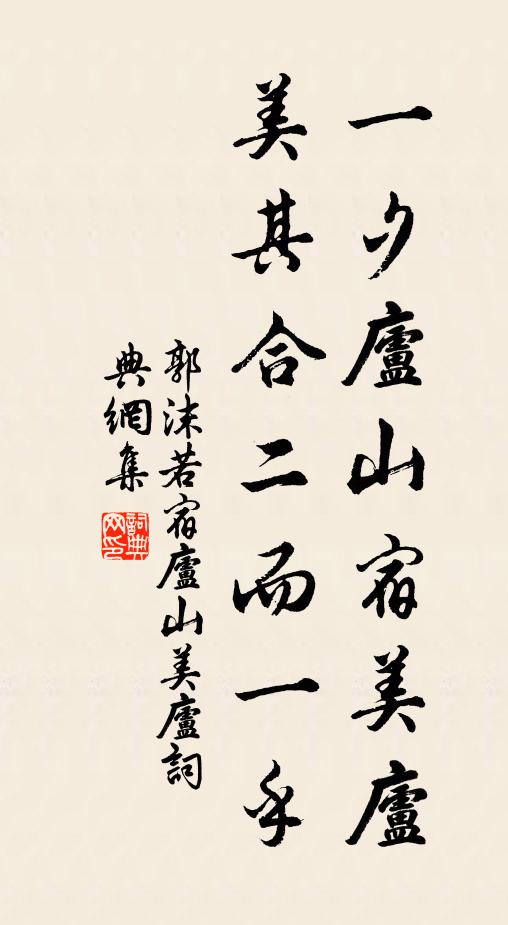 一夕廬山宿美廬
美其合二而一乎
郭沫若宿廬山美廬詞
典網集
詞典网印